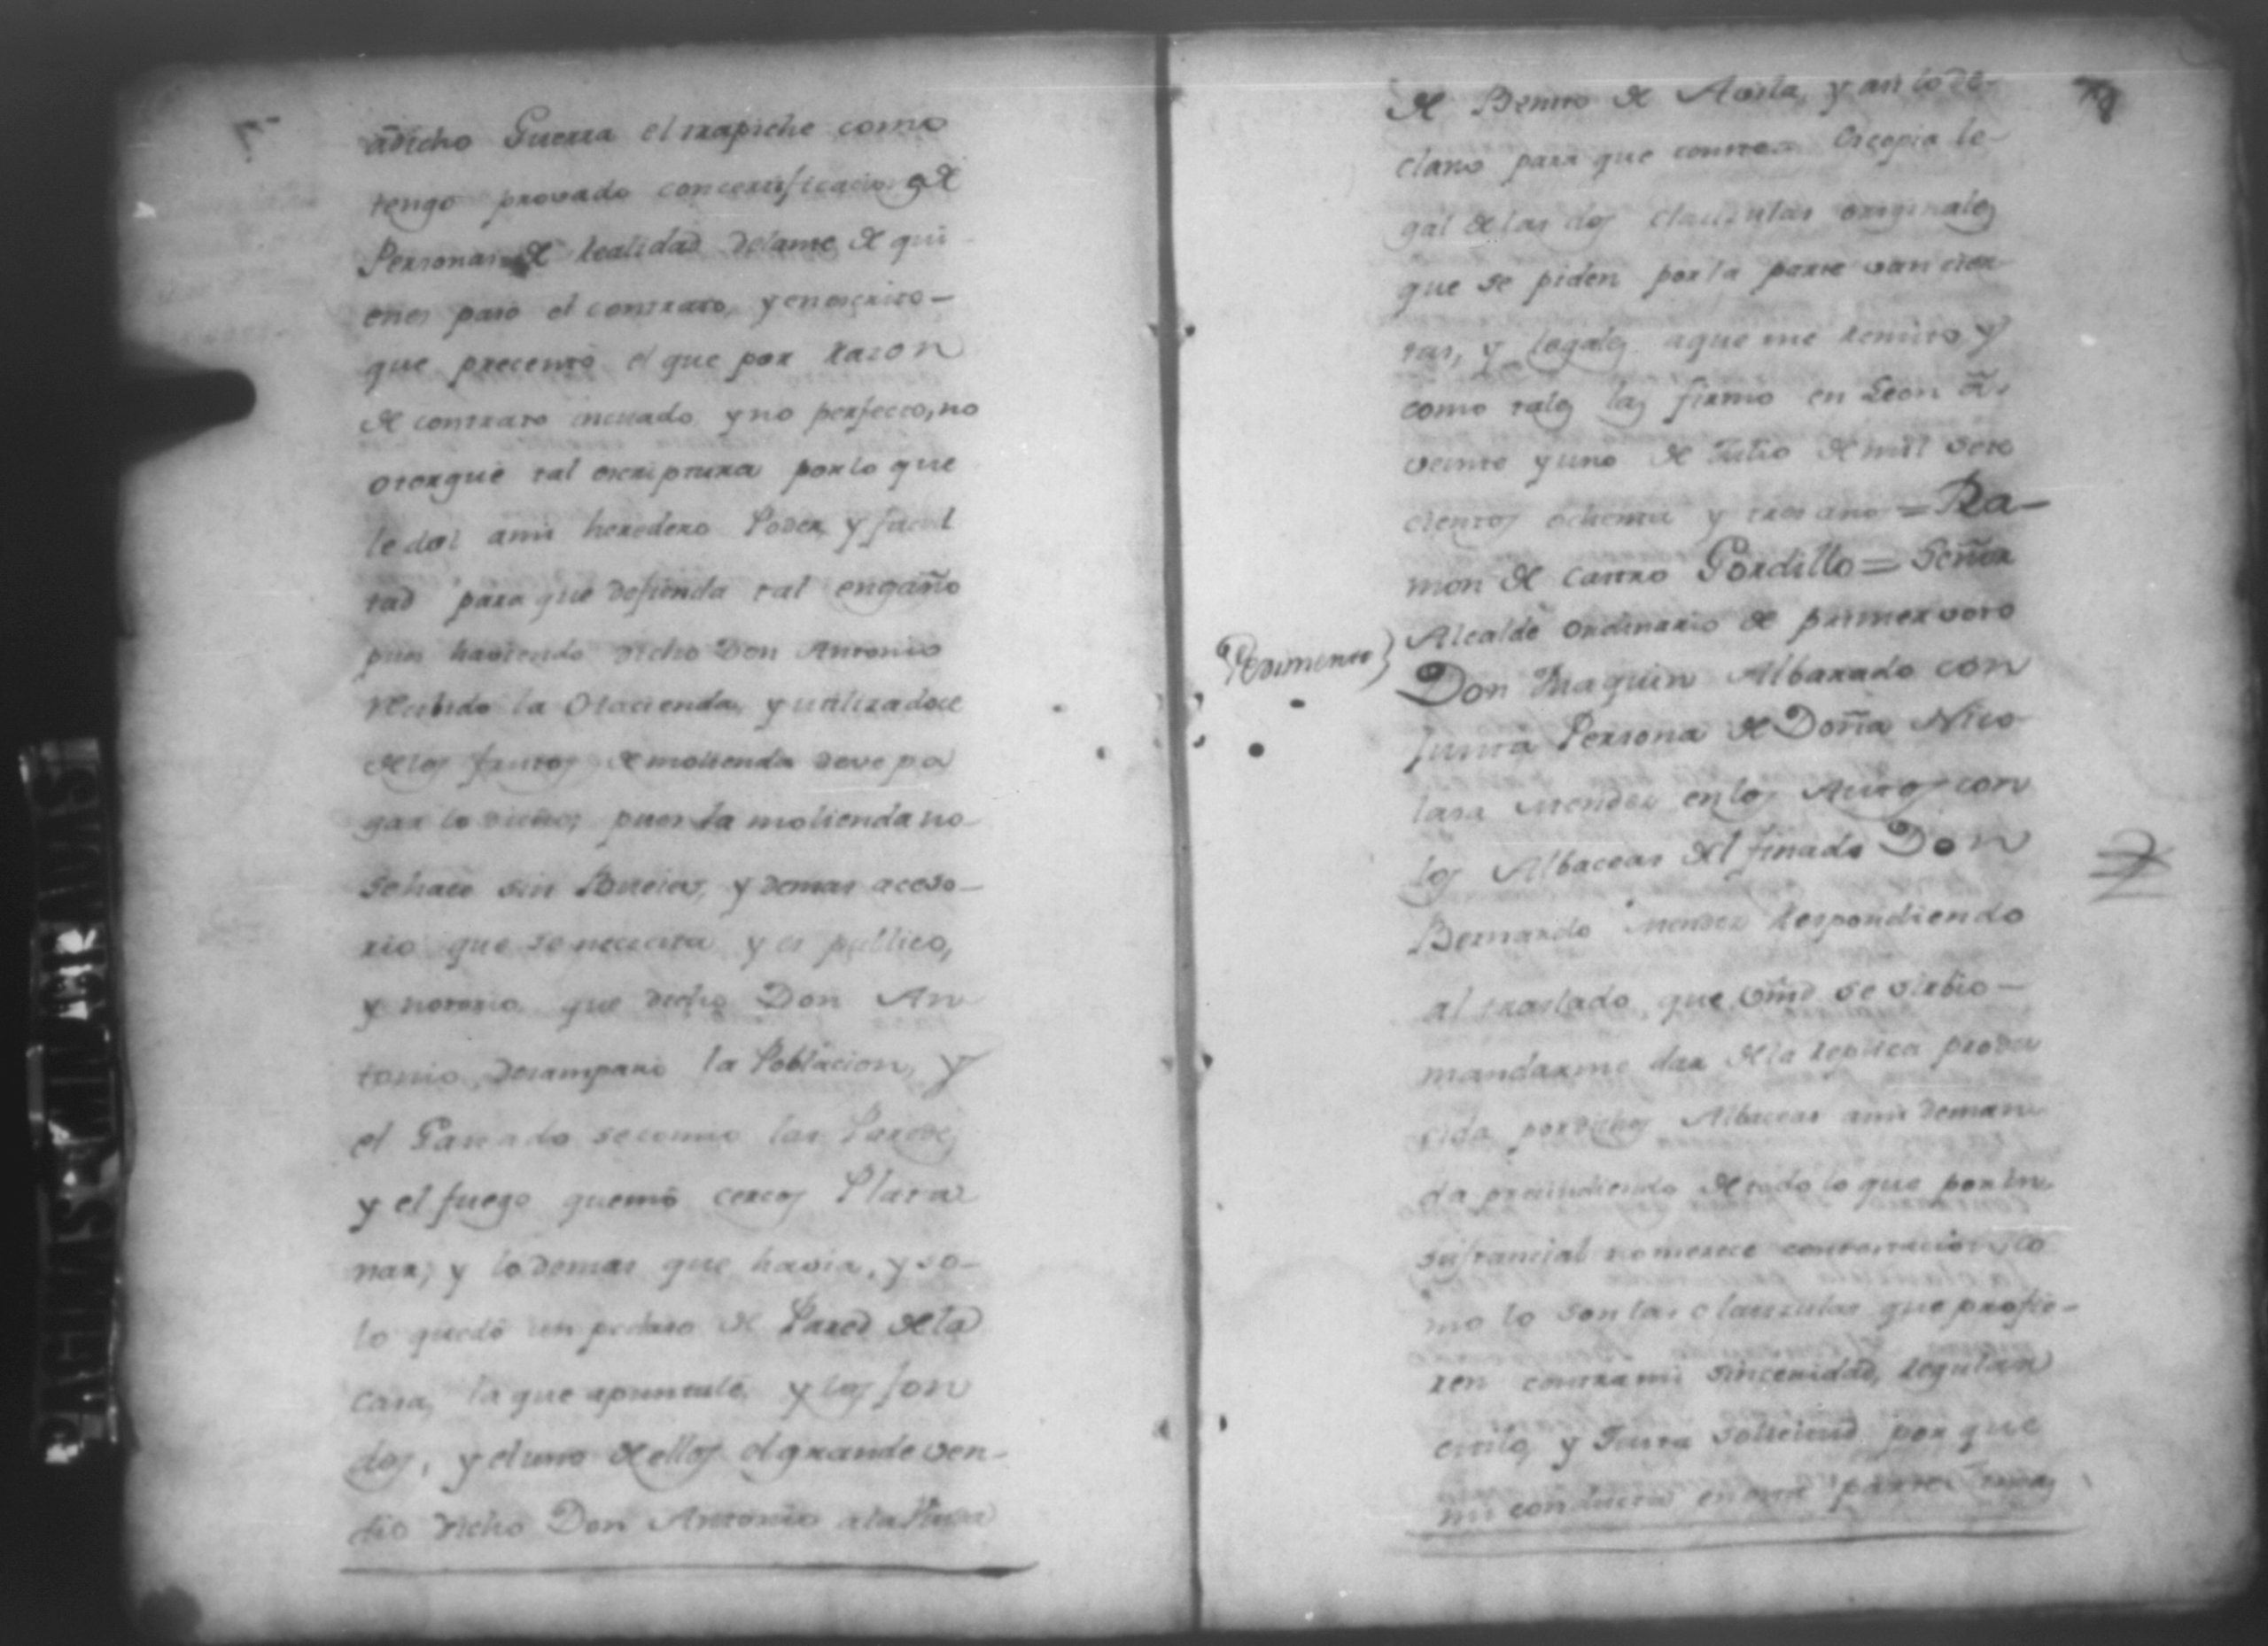 adicho Guerra el trapiche como
tengo provado concertificacion de
Personas de realidad delante de qui
enes paso el contrato, y en escrito
que precentó el que por razon
de contrato incuado y no perfecto, no
otorgué tal escriptura por lo que
le doi ami heredero Poder, y facul
tad para que defienda tal engaño
pues haviendo dicho Don Antonio
recibido la Hacienda, y utilizadoce
de los frutos de molienda deve pa
gar lo dicho; pues la molienda no
se hace sin Bueies, y demas aceso
rio que se nececita y es publico,
y notorio que dicho Don An
tonio, desamparó la Poblacion, y
el Ganado se comio las Paredes
y el fuego quemó cercos Plata
nar, y lo demas que havia, y so
lo quedó un pedaso de Pared de la
casa, la que apuntalé, y los fon
dos, y el uno de ellos el grande ven
dio dicho Don Antonio a la Viuda
78
de Benito de Acosta, y asi lo de
claro para que conste Es copia le
gal de las dos clausulas originales
que se piden por la parte van cier
tas, y legales aque me remito y
como tales las firmo en Leon a
veinte y uno de Julio de mil sete
cientos ochenta y tres anos = Ra
mon de Castro Gordillo = Señor
Alcalde ordinario de primer voto
Pedimento) Don Juaquin Albarado con
junta Persona de Doña Nico
lasa Mendez en los Autos con
los Albaceas del finado Don
Bernardo Mendez Respondiendo
al traslado, que Vmd se sirbio
mandarme dar de la replica produ
cida por dichos Albaceas ami deman
da precindiendo de todo lo que por in
sustancial no merece contestacion co
mo lo son las clausulas que profie
ren contra mi sinceridad, regular
estilo, y Justa solicitud por que
mi conducta en esta parte